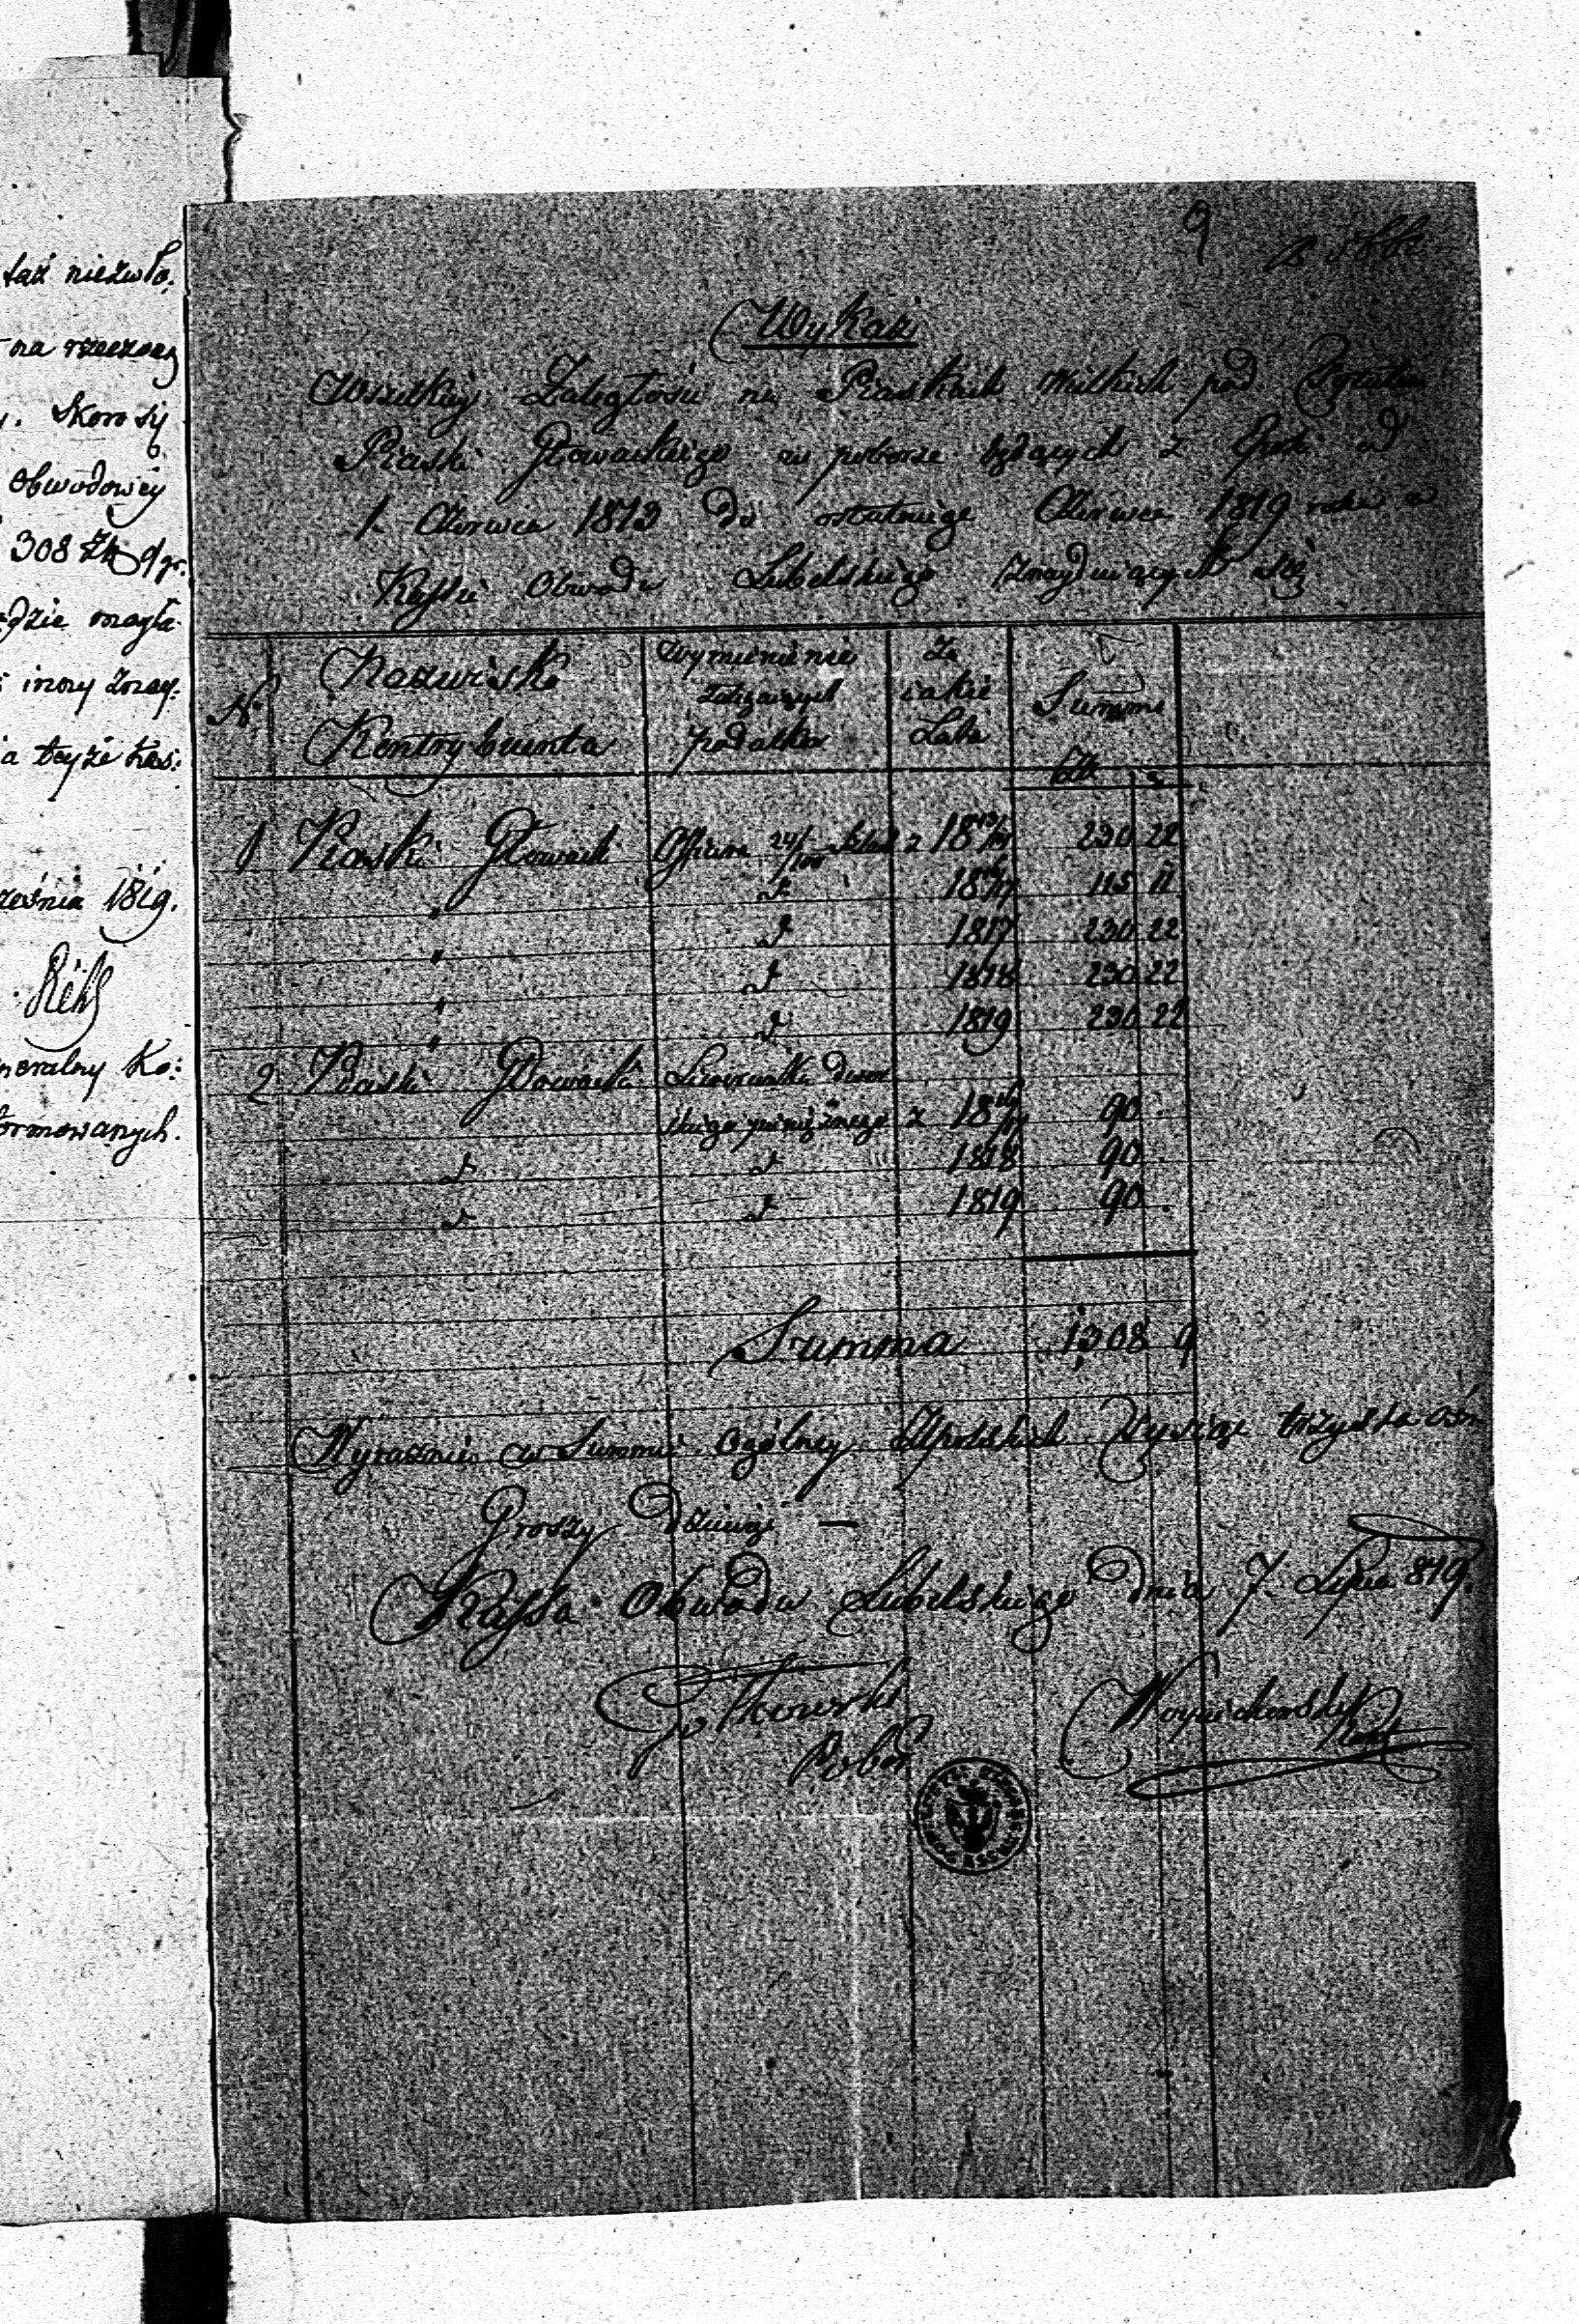 taż niezwło:
na rzeczoey
Skoro się
obwodowey
308 Zł 9 gr.
ędzie nagła
inny znay:
a teyże Kas:
ześnia 1819.
neralny Ko:
formowanych.
9
Wykaz
Wszelkiey Zaległości na Piaskach Wielkich pod
Piaski Głowackiego w poborze będących z Epoki od
1 Czerwca 1813 do ostatniego Czerwca 1819 roku w
Kassie Obwodu Lubelskiego znayduiących się
Nº Nazwisko Kontrybuenta Wymienienie zalegaiących podatków Za iakie Lata Summa
Złt g
1 Piaski Głowacki Offiara 24/100 z 18 13/14 230 22
" d 18 115 11
" d 1817 230 22
" d 1818 230 22
" d 1819 230 22
2 Piaski Głowacki Liwerunku dwor
skiego pieniężnego z 18 90
d d 1818 90
d d 1819 90
Summa 1308 9
Wyraznie w Summie Ogólney Złpolskich Tysiąc trzysta ośm
Groszy Dziewięć —
Kassa Obwodu Lubelskiego dnia 7 Lipca 819.
Gutkowski Woyciechowski
Pobor